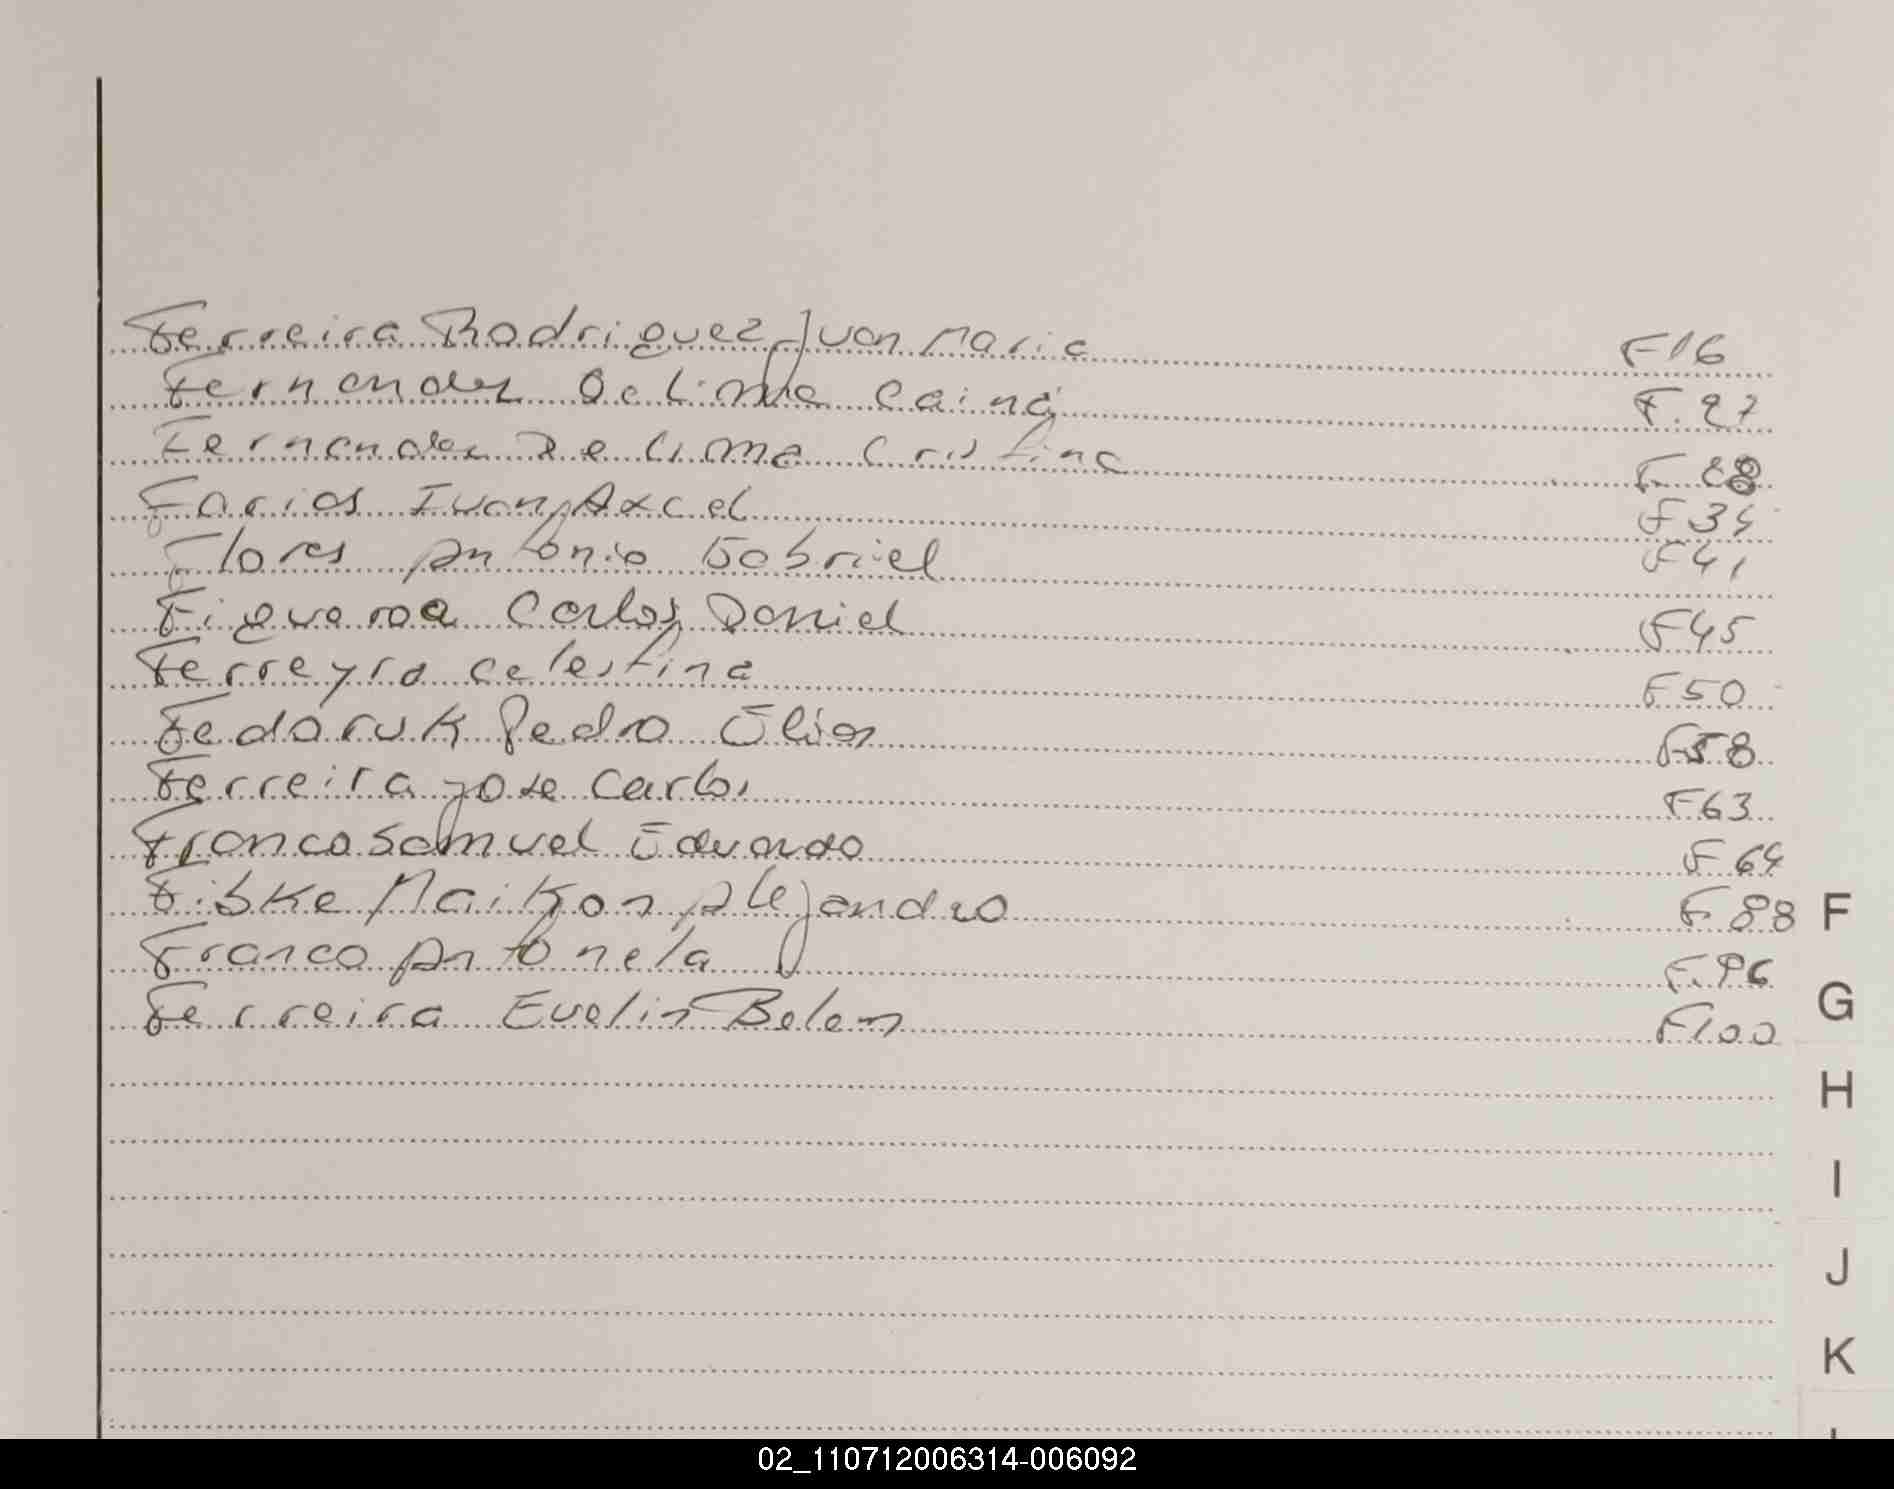 Ferreira Rodriguez Juan Maria F16
Fernandez De Lima Cainá F.27
Fernandez De Lima Cristina F.28
Farias Ivan Axcel F34
Flores Antonio Gabriel F41
Figueroa Carlos Daniel F45
Ferreyra Celestina F50
Fedoruk Pedro Elias F58
Ferreira Jose Carlos F63
Franco Samuel Eduardo F64
Fibke Maikon Alejandro F88
Franco Antonela F.96
Ferreira Evelin Belen F100
F
G
H
I
J
K
02_110712006314-006092